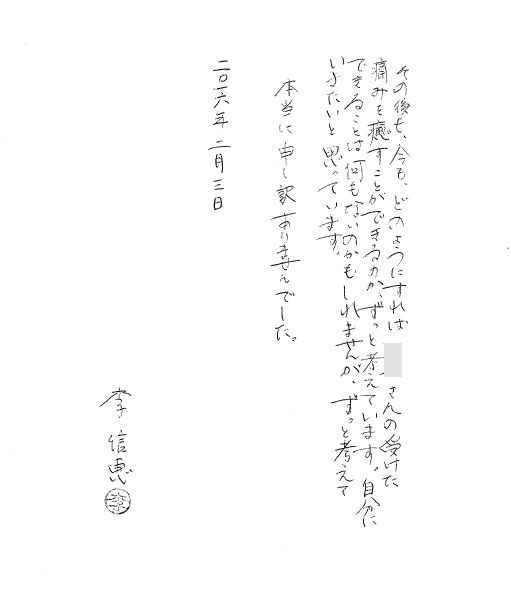 その後も、今も、どのようにすれば さんの受けた
痛みを癒すことができるのか、ずっと考えています。自分に
できることは何もないのかもしれませんが、ずっと考えて
いきたいと思っています。
本当に申し訳ありませんでした。
二〇一六年二月三日
李信恵
李